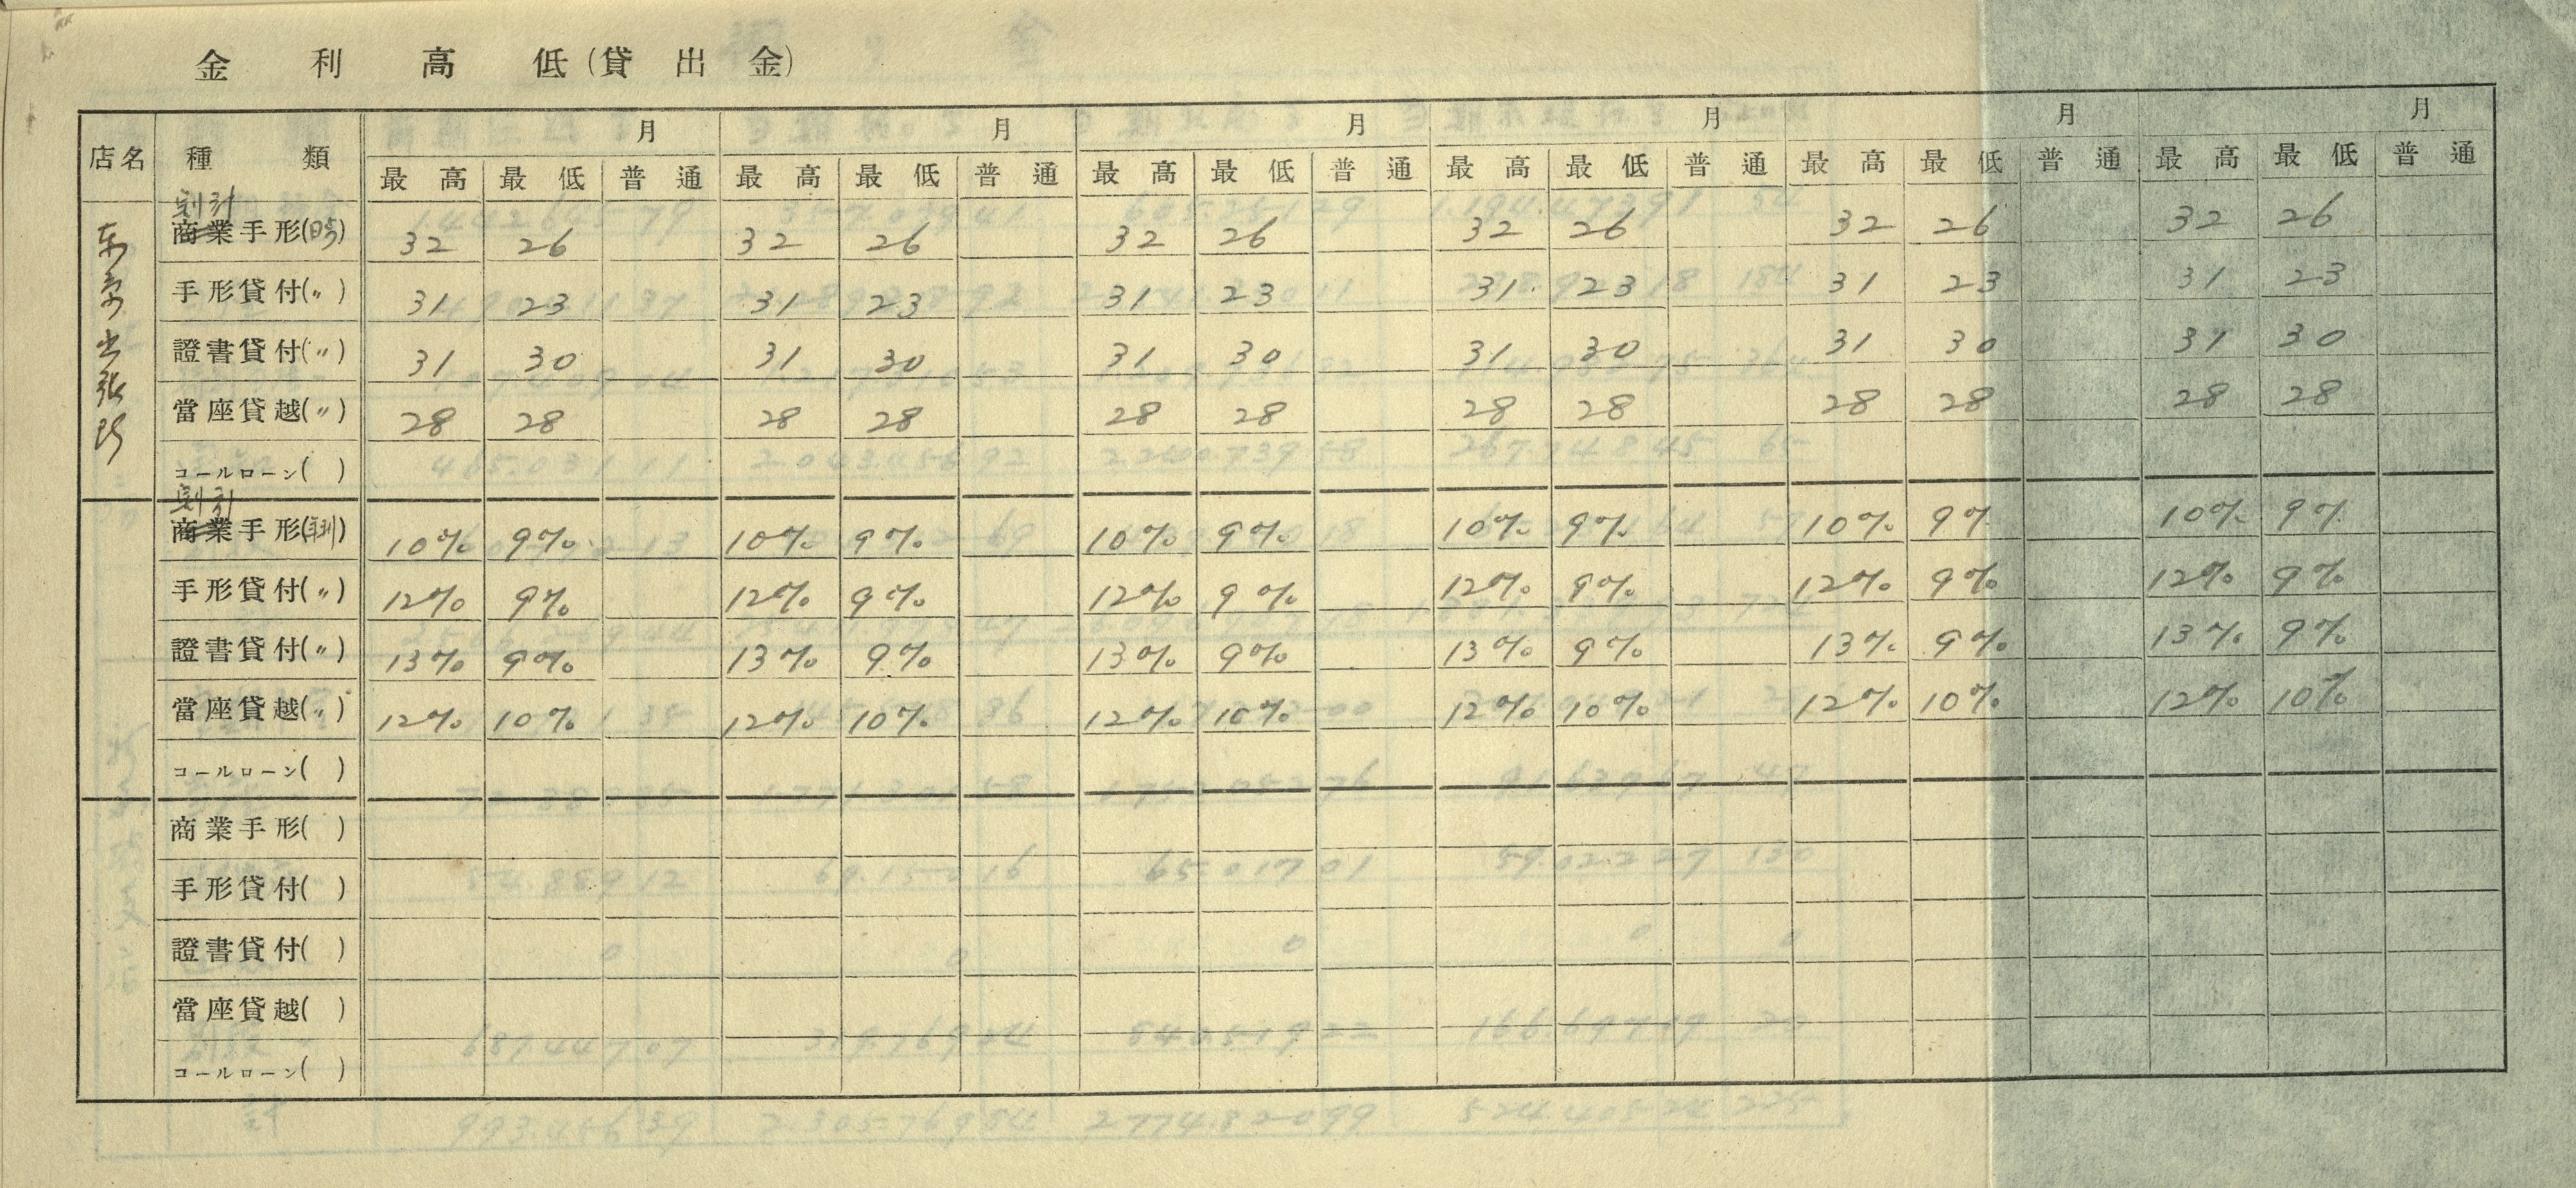 金利高低(貸出金)
店名 種類 月 月 月 月 月 月
最高 最低 普通 最高 最低 普通 最高 最低 普通 最高 最低 普通 最高 最低 普通 最高 最低 普通
東京出張所
割引
商業手形(日歩) 32 26 32 26 32 26 32 26 32 26 32 26
手形貸付(〃) 31 23 31 23 31 23 31 23 31 23 31 23
證書貸付(〃) 31 30 31 30 31 30 31 30 31 30 31 30
當座貸越(〃) 28 28 28 28 28 28 28 28 28 28 28 28
コールローン( )
割引
商業手形(年利) 10% 9% 10% 9% 10% 9% 10% 9% 10% 9% 10% 9%
手形貸付(〃) 12% 9% 12% 9% 12% 9% 12% 9% 12% 9% 12% 9%
證書貸付(〃) 13% 9% 13% 9% 13% 9% 13% 9% 13% 9% 13% 9%
當座貸越(〃) 12% 10% 12% 10% 12% 10% 12% 10% 12% 10% 12% 10%
コールローン( )
商業手形( )
手形貸付( )
證書貸付( )
當座貸越( )
コールローン( )